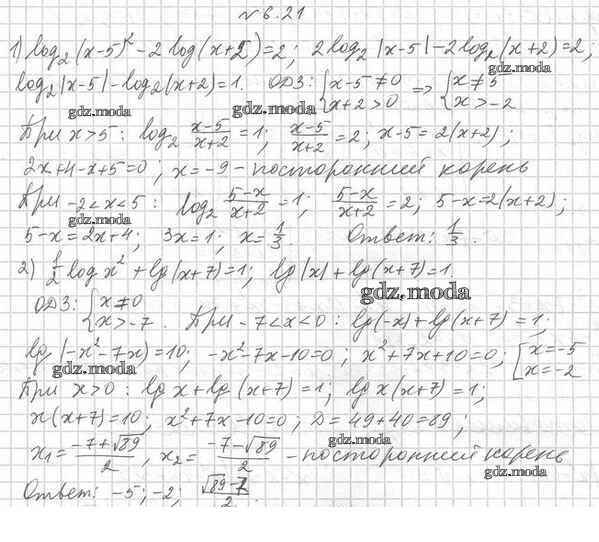 № 6.21
1) log₂(x-5)² - 2 log(x+2) = 2; 2 log₂|x-5| - 2 log₂(x+2) = 2;
log₂|x-5| - log₂(x+2) = 1. ОДЗ: { x-5≠0 => { x≠5
x+2>0 x>-2
gdz.moda gdz.moda gdz.moda
При x>5: log₂ (x-5)/(x+2) = 1; (x-5)/(x+2) = 2; x-5 = 2(x+2);
2x+4-x+5=0; x=-9 - посторонний корень
При -2<x<5: log₂ (5-x)/(x+2) = 1; (5-x)/(x+2) = 2; 5-x=2(x+2);
gdz.moda
5-x=2x+4; 3x=1; x=1/3. Ответ: 1/3.
2) 1/2 log x² + lg(x+7)=1; lg|x| + lg(x+7)=1.
gdz.moda
ОДЗ: { x≠0
x>-7. При -7<x<0: lg(-x)+lg(x+7)=1;
lg(-x²-7x)=10; -x²-7x-10=0; x²+7x+10=0; [ x=-5
x=-2
gdz.moda gdz.moda
При x>0: lg x + lg(x+7)=1; lg x(x+7)=1;
x(x+7)=10; x²+7x-10=0; D=49+40=89;
gdz.moda
x₁= (-7+√89)/2, x₂= (-7-√89)/2 - посторонний корень
gdz.moda
Ответ: -5; -2; (√89-7)/2.